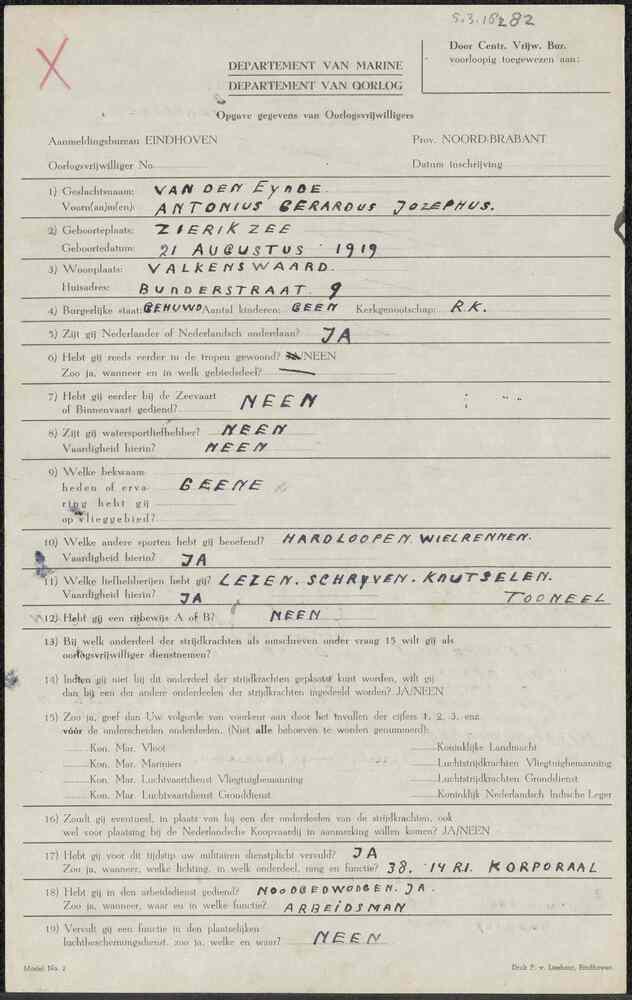 S.3.16282
Door Centr. Vrijw. Bur.
voorloopig toegewezen aan:
DEPARTEMENT VAN MARINE
DEPARTEMENT VAN OORLOG
Opgave gegevens van Oorlogsvrijwilligers
Aanmeldingsbureau EINDHOVEN Prov. NOORD-BRABANT
Oorlogsvrijwilliger No. Datum inschrijving
1) Geslachtsnaam: VAN DEN EYNDE.
Voorn(aa)m(en): ANTONIUS GERARDUS JOZEPHUS.
2) Geboorteplaats: ZIERIKZEE
Geboortedatum: 21 AUGUSTUS 1919
3) Woonplaats: VALKENSWAARD.
Huisadres: BUNDERSTRAAT 9
4) Burgerlijke staat: GEHUWD Aantal kinderen: GEEN Kerkgenootschap: R.K.
5) Zijt gij Nederlander of Nederlandsch onderdaan? JA
6) Hebt gij reeds eerder in de tropen gewoond? JA/NEEN
Zoo ja, wanneer en in welk gebiedsdeel?
7) Hebt gij eerder bij de Zeevaart
of Binnenvaart gediend? NEEN
8) Zijt gij watersportliefhebber? NEEN
Vaardigheid hierin? NEEN
9) Welke bekwaam-
heden of erva-
ring hebt gij
op vlieggebied? GEENE
10) Welke andere sporten hebt gij beoefend? HARDLOOPEN. WIELRENNEN.
Vaardigheid hierin? JA
11) Welke liefhebberijen hebt gij? LEZEN. SCHRYVEN. KNUTSELEN.
Vaardigheid hierin? JA TOONEEL
12) Hebt gij een rijbewijs A of B? NEEN
13) Bij welk onderdeel der strijdkrachten als omschreven onder vraag 15 wilt gij als
oorlogsvrijwilliger dienstnemen?
14) Indien gij niet bij dit onderdeel der strijdkrachten geplaatst kunt worden, wilt gij
dan bij een der andere onderdeelen der strijdkrachten ingedeeld worden? JA/NEEN
15) Zoo ja, geef dan Uw volgorde van voorkeur aan door het invullen der cijfers 1, 2, 3, enz.
vóór de onderscheiden onderdeelen. (Niet alle behoeven te worden genummerd):
Kon. Mar. Vloot Koninklijke Landmacht
Kon. Mar. Mariniers Luchtstrijdkrachten Vliegtuigbemanning
Kon. Mar. Luchtvaartdienst Vliegtuigbemanning Luchtstrijdkrachten Gronddienst
Kon. Mar. Luchtvaartdienst Gronddienst Koninklijk Nederlandsch Indische Leger
16) Zoudt gij eventueel, in plaats van bij een der onderdeelen van de strijdkrachten, ook
wel voor plaatsing bij de Nederlandsche Koopvaardij in aanmerking willen komen? JA/NEEN
17) Hebt gij voor dit tijdstip uw militairen dienstplicht vervuld? JA
Zoo ja, wanneer, welke lichting, in welk onderdeel, rang en functie? 38. 14 R.I. KORPORAAL
18) Hebt gij in den arbeidsdienst gediend? NOODGEDWONGEN. JA.
Zoo ja, wanneer, waar en in welke functie? ARBEIDSMAN
19) Vervult gij een functie in den plaatselijken
luchtbeschermingsdienst, zoo ja, welke en waar? NEEN
Model No. 2 Druk P. v. Lieshout, Eindhoven